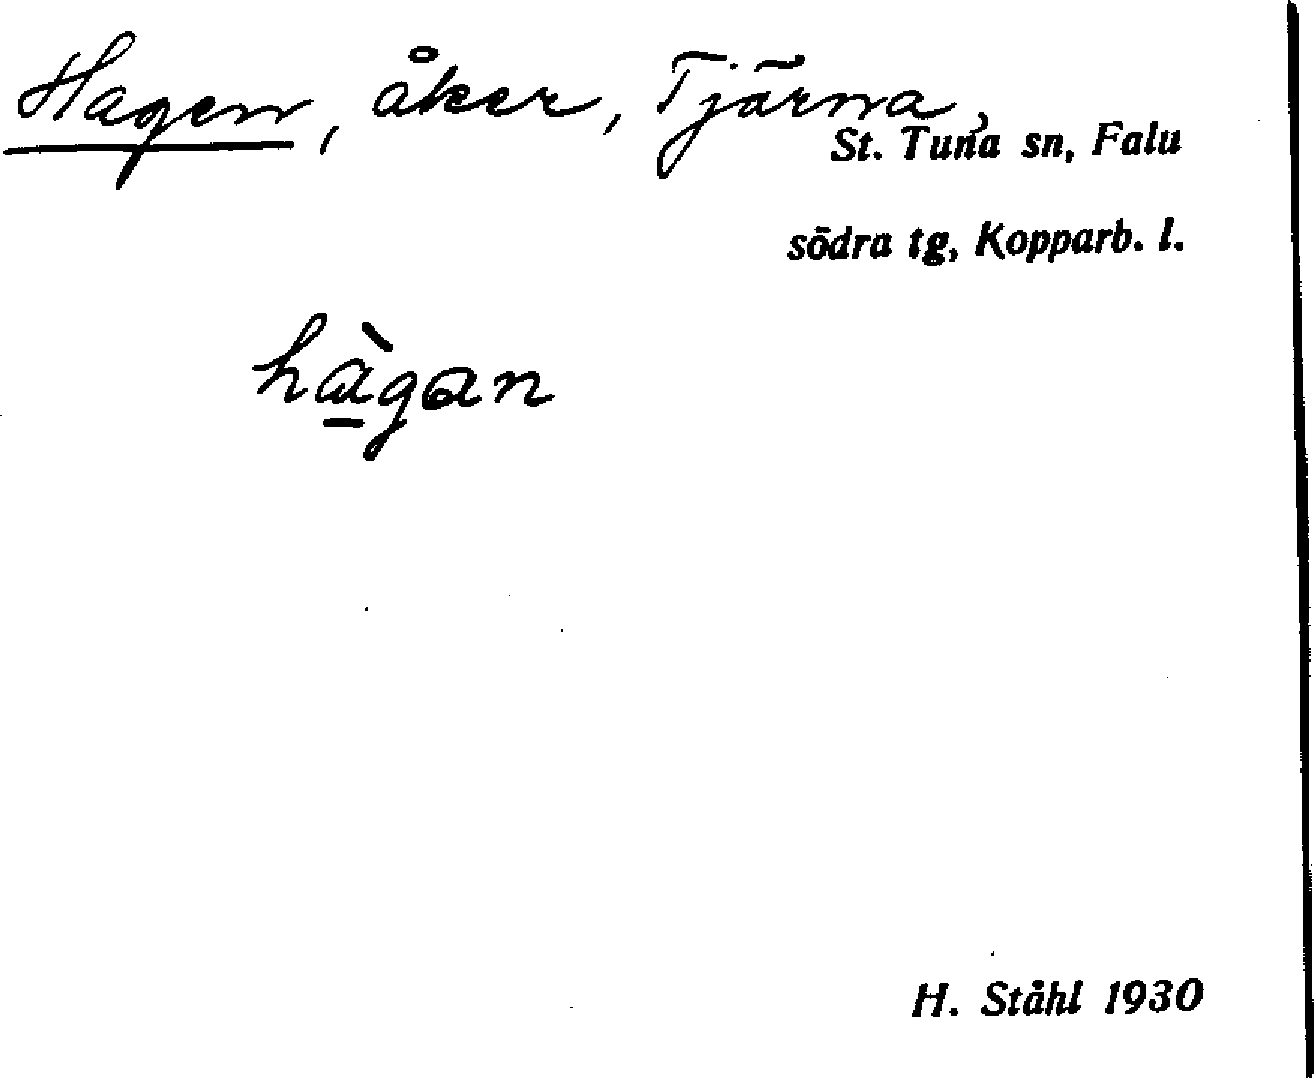 Hagen, åker, Tjärna,
St. Tuna sn, Falu
södra tg, Kopparb. l.
hà̱gan
H. Ståhl 1930